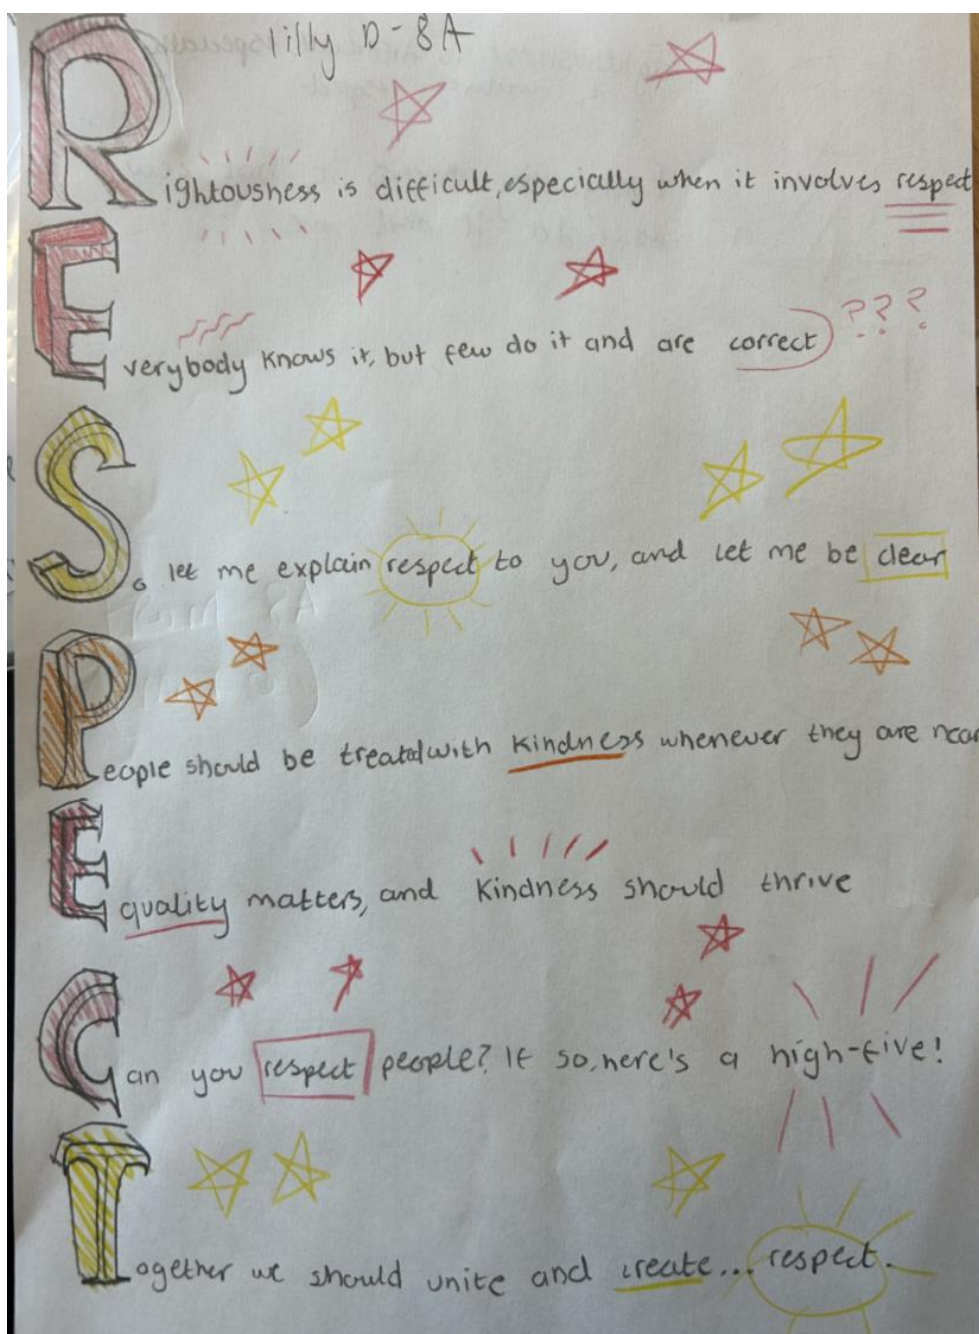 lilly D-8A
Rightousness is difficult, especially when it involves respect
Everybody knows it, but few do it and are correct ???
So let me explain respect to you, and let me be clear
People should be treated with kindness whenever they are near
Equality matters, and kindness should thrive
Can you respect people? If so, here's a high-five!
Together we should unite and create... respect.